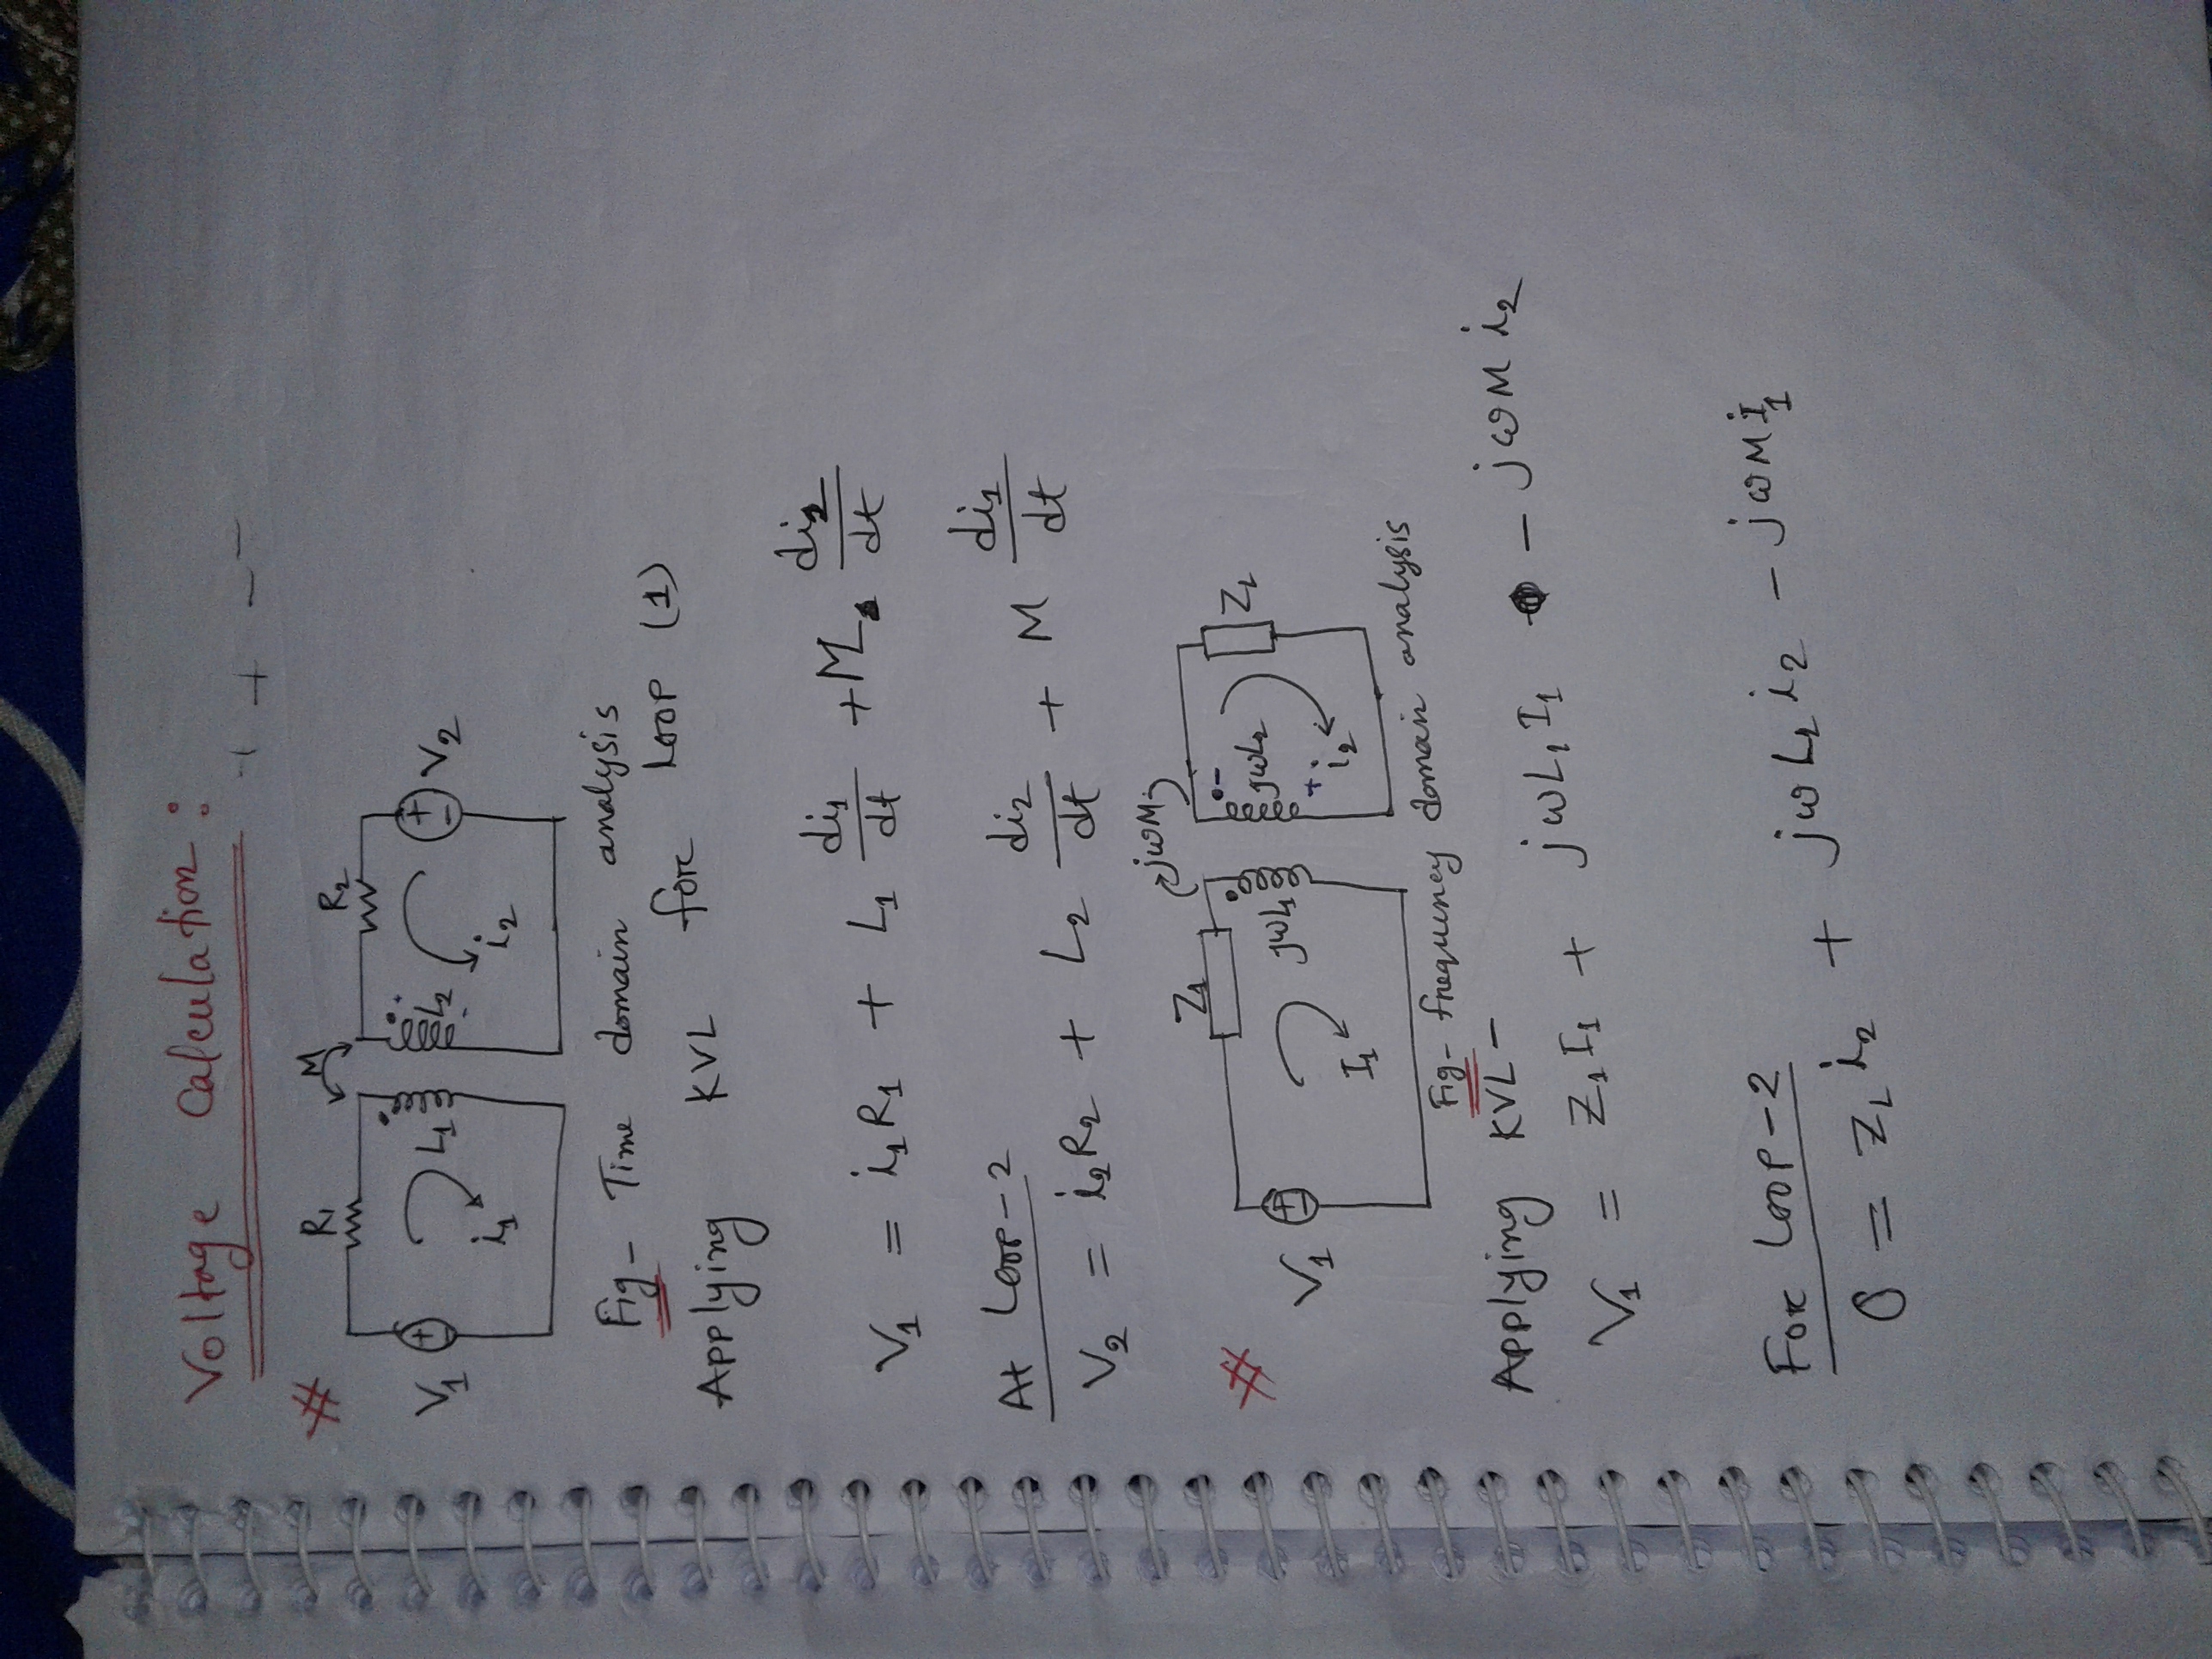 Voltage Calculation:
+ + - -
#
R1 M R2
V1 + - L1 L2 + - + - V2
i1 i2
Fig- Time domain analysis
Applying KVL for Loop (1)
V1 = i1R1 + L1 di1/dt + M di2/dt
At Loop-2
V2 = i2R2 + L2 di2/dt + M di1/dt
jωM
# Z1
V1 + - jωL1 - jωL2 + ZL
I1 i2
Fig- frequency domain analysis
Applying KVL-
V1 = Z1I1 + jωL1I1 - jωMi2
For Loop-2
0 = ZLi2 + jωL2i2 - jωMI1